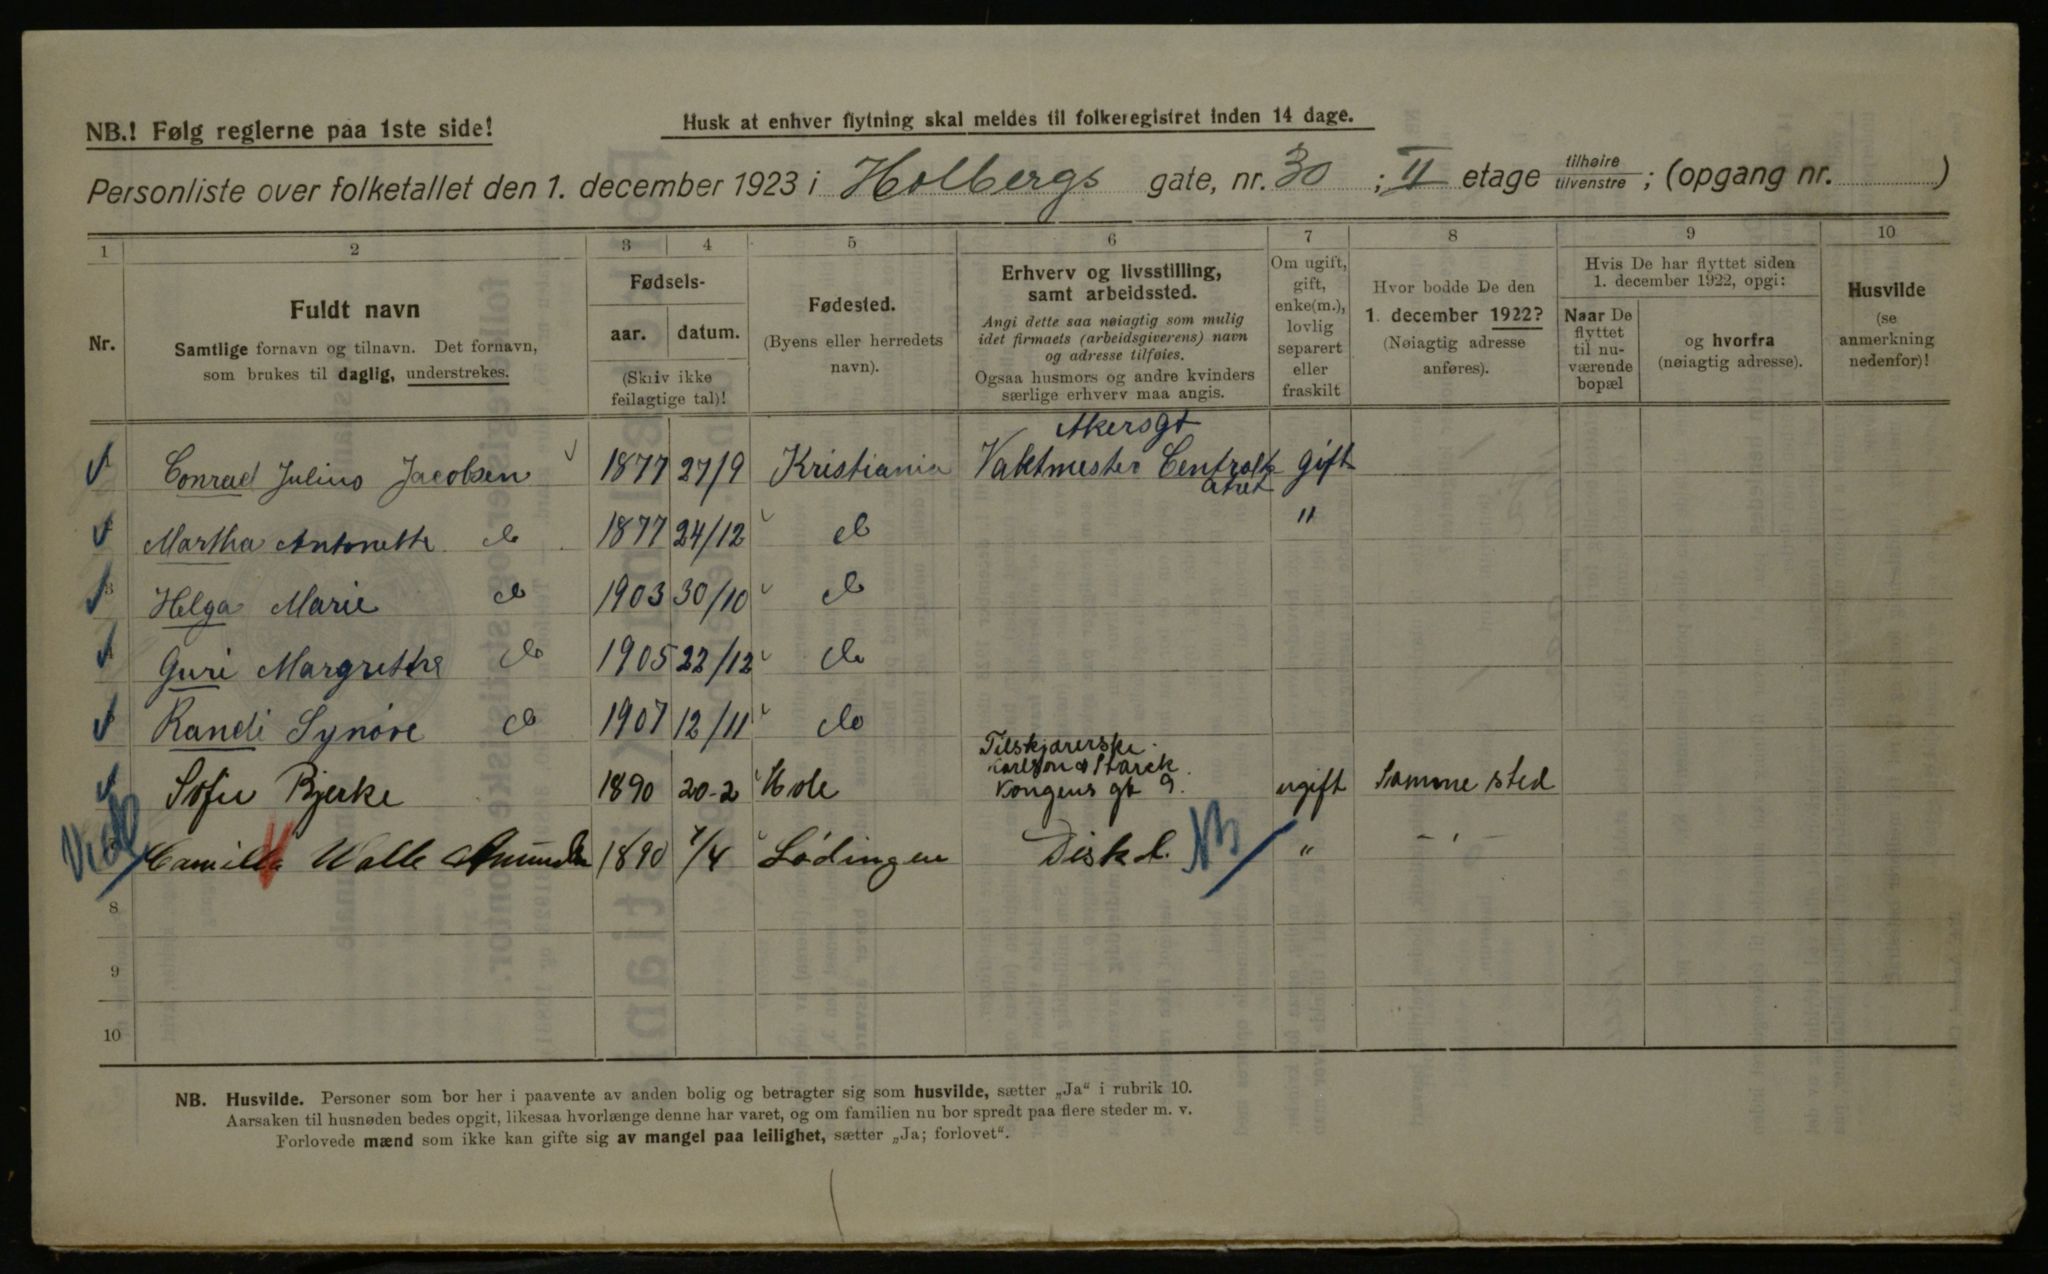 NB.! Følg reglerne paa 1ste side!
Husk at enhver flytning skal meldes til folkeregistret inden 14 dage.
Personliste over folketallet den 1. december 1923 i Holbergs gate, nr. 30 ; II etage tilhøire tilvenstre ; (opgang nr. )
1 2 3 4 5 6 7 8 9 10
Nr.
Fuldt navn
Samtlige fornavn og tilnavn. Det fornavn,
som brukes til daglig, understrekes.
Fødsels-
aar. datum.
(Skriv ikke
feilagtige tal)!
Fødested.
(Byens eller herredets
navn).
Erhverv og livsstilling,
samt arbeidssted.
Angi dette saa nøiagtig som mulig
idet firmaets (arbeidsgiverens) navn
og adresse tilføies.
Ogsaa husmors og andre kvinders
særlige erhverv maa angis.
Om ugift,
gift,
enke(m.),
lovlig
separert
eller
fraskilt
Hvor bodde De den
1. december 1922?
(Nøiagtig adresse
anføres).
Hvis De har flyttet siden
1. december 1922, opgi:
Naar De
flyttet
til nu-
værende
bopæl
og hvorfra
(nøiagtig adresse).
Husvilde
(se
anmerkning
nedenfor)!
Akersgt
Conrad Julius Jacobsen 1877 27/9 Kristiania Vaktmester Centralte gift
atret
Martha Antonette do 1877 24/12 do "
Helga Marie do 1903 30/10 do
Guri Margrethe do 1905 22/12 do
Randi Synøve do 1907 12/11 do
Tilskjærerske
Karlson & Starck
Sofie Bjerke 1890 20-2 Hole Kongens gt 9. ugift Samme sted
Camilla Walle 1890 7/4 Lødingen Disk d. " - " -
8
9
10
NB. Husvilde. Personer som bor her i paavente av anden bolig og betragter sig som husvilde, sætter „Ja“ i rubrik 10.
Aarsaken til husnøden bedes opgit, likesaa hvorlænge denne har varet, og om familien nu bor spredt paa flere steder m. v.
Forlovede mænd som ikke kan gifte sig av mangel paa leilighet, sætter „Ja; forlovet“.